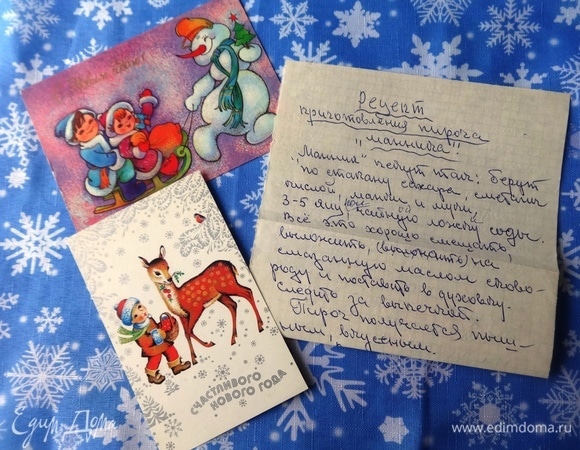 Рецепт
приготовления пирога
"манника"
"Манник" пекут так: берут
по стакану сахара, сметаны
кислой, манки и муки,
3-5 яиц, чайную ложку соды.
Всё это хорошо смешать,
выложить (выложить) на
смазанную маслом сково-
роду и поставить в духовку.
Следить за выпечкой.
Пирог получается пыш-
ным, вкусным.
СЧАСТЛИВОГО
НОВОГО ГОДА
Едим Дома
www.edimdoma.ru